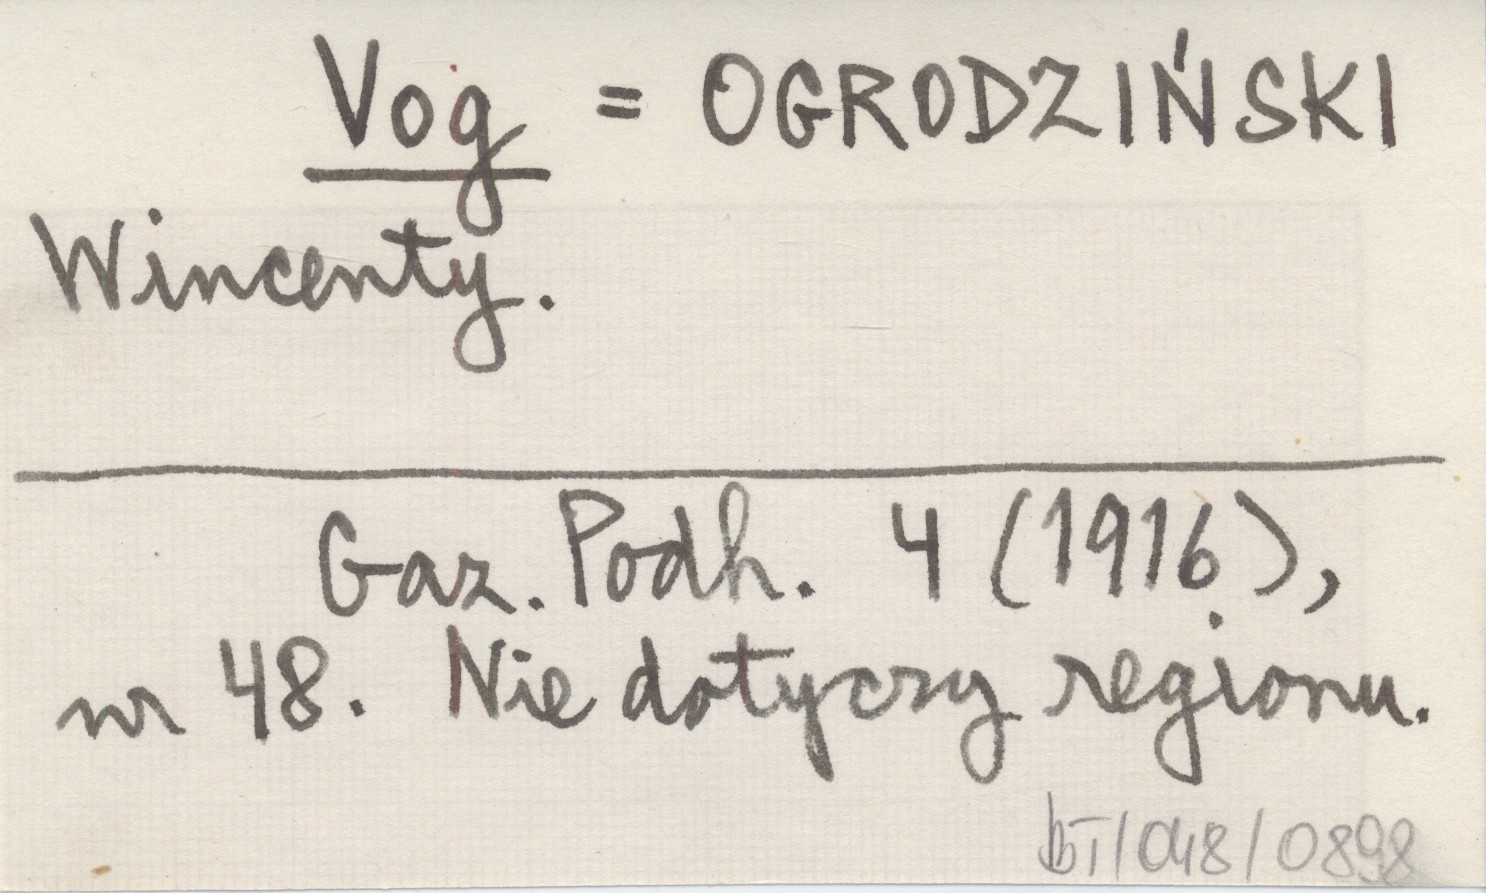 Vog = OGRODZIŃSKI
Wincenty.
Gaz. Podh. 4 (1916),
nr 48. Nie dotyczy regionu.
bT/048/0898